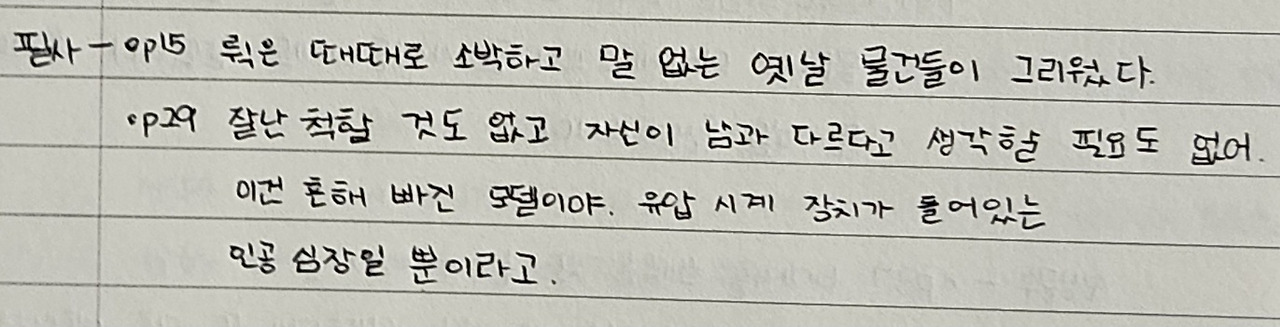 필사 - •p15 뤽은 때때로 소박하고 말 없는 옛날 물건들이 그리웠다.
•p29 잘난 척할 것도 없고 자신이 남과 다르다고 생각할 필요도 없어.
이건 흔해 빠진 모델이야. 유압 시계 장치가 들어있는
인공 심장일 뿐이라고.